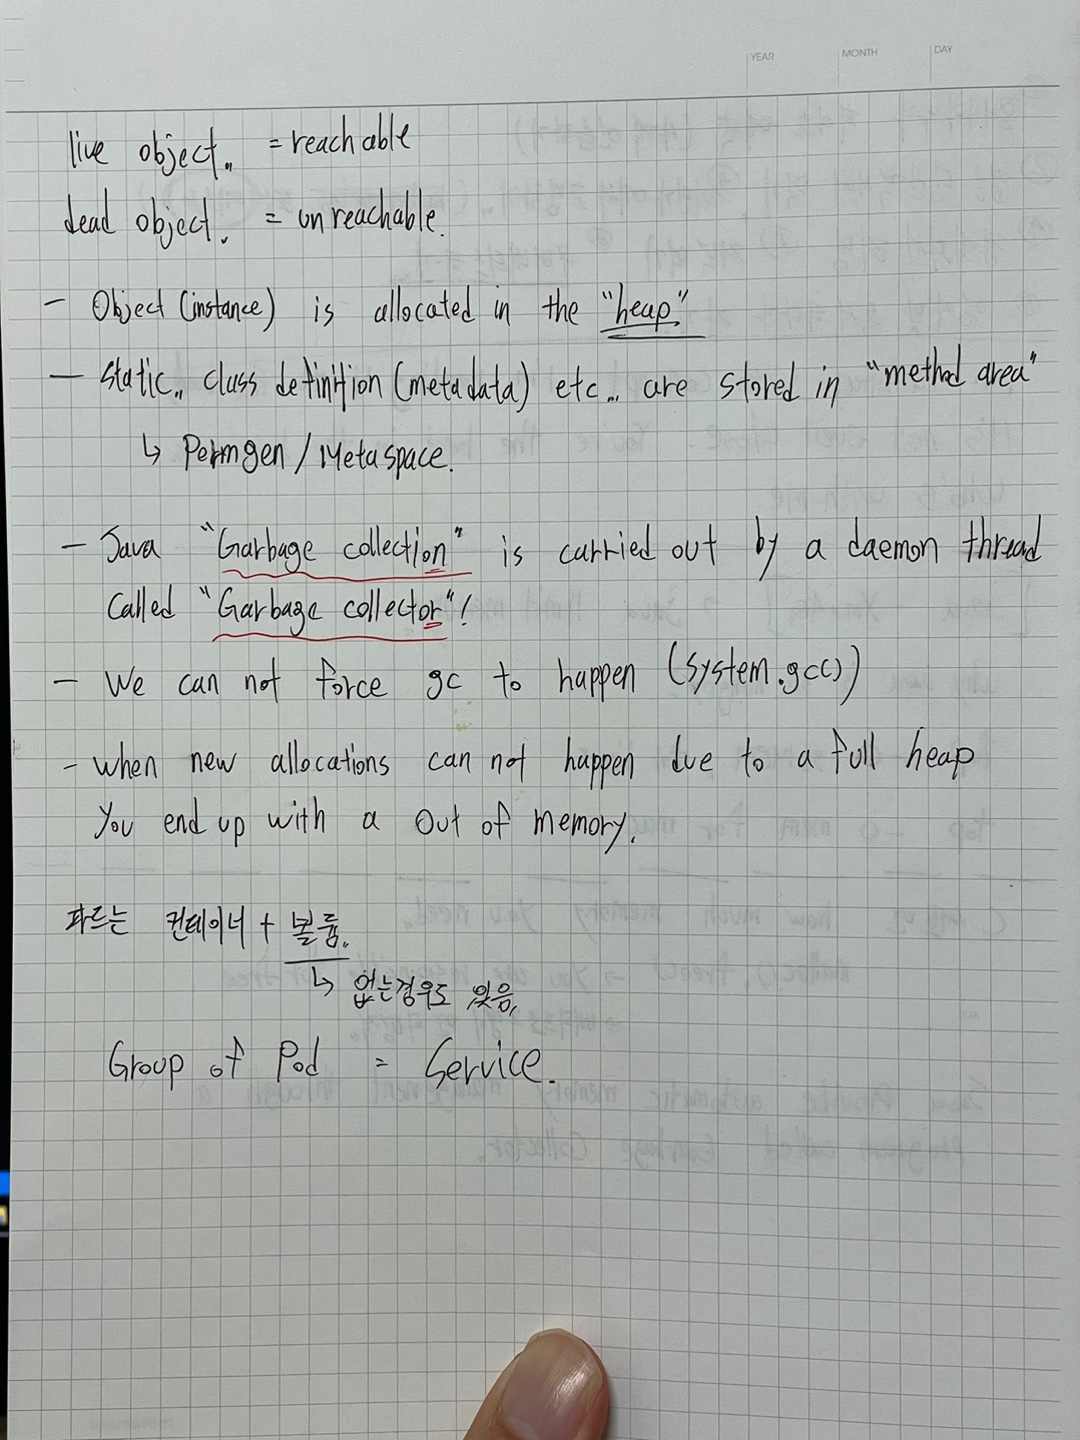 YEAR MONTH DAY
live object.. = reachable
dead object. = unreachable.
- Object (instance) is allocated in the "heap"
- static.. class definition (metadata) etc... are stored in "method area"
↳ Permgen / Metaspace.
- Java "Garbage collection" is carried out by a daemon thread
called "Garbage collector"!
- We can not force gc to happen (system.gc())
- when new allocations can not happen due to a full heap
You end up with a out of memory.
파드는 컨테이너 + 볼륨..
↳ 없는경우도 있음.
Group of Pod = Service.